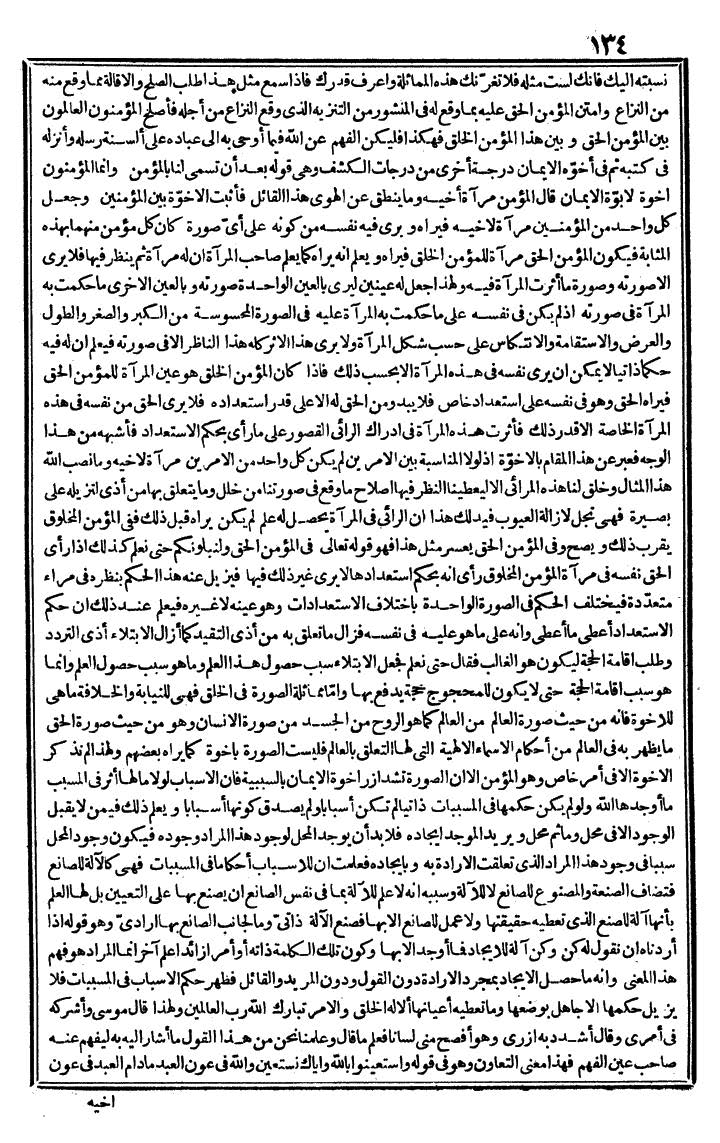 ١٣٤
نسبته اليك فانك لست مثله فلا تغرّنك هذه المماثلة واعرف قدرك فاذا سمع مثل هذا طلب الصلح والاقالة مما وقع منه
من النزاع وامتن المؤمن الحق عليه بما وقع له في المنشور من التنزيه الذى وقع النزاع من أجله فأصلح المؤمنون العالمون
بين المؤمن الحق و بين هذا المؤمن الخلق فهكذا فليكن الفهم عن الله فيما أوحى به الى عباده على ألسنة رسله وأنزله
فى كتبه ثم فى أخوّه الايمان درجة أخرى من درجات الكشف وهى قوله بعد أن تسمى لنا بالمؤمن وانما المؤمنون
اخوة لابوّة الايمان قال المؤمن مرآة أخيه وما ينطق عن الهوى هذا القائل فأثبت الاخوّة بين المؤمنين وجعل
كل واحد من المؤمنين مرآة لاخيه فيراه و يرى فيه نفسه من كونه على أىّ صورة كان كل مؤمن منهما بهذه
المثابة فيكون المؤمن الحق مرآة للمؤمن الخلقى فيراه و يعلم انه يراه كما يعلم صاحب المرآة ان له مرآة ثم ينظر فيها فلا يرى
الا صورته وصورة ما أثرت المرآة فيه ولهذا جعل له عينين ليرى بالعين الواحدة صورته و بالعين الاخرى ما حكمت به
المرآة فى صورته اذ لم يكن فى نفسه على ما حكمت به المرآة عليه فى الصورة المحسوسة من الكبر والصغر والطول
والعرض والاستقامة والانتكاس على حسب شكل المرآة ولا يرى هذا الاثر كله هذا الناظر الا فى صورته فيعلم ان له فيه
حكما ذاتيا لا يمكن ان يرى نفسه فى هذه المرآة الا بحسب ذلك فاذا كان المؤمن الخلق هو عين المرآة للمؤمن الحق
فيراه الحق وهو فى نفسه على استعداد خاص فلا يبدو من الحق له الا على قدر استعداده فلا يرى الحق من نفسه فى هذه
المرآة الخاصة الا قدر ذلك فأثرت هذه المرآة فى ادراك الرائى القصور على ما رأى بحكم الاستعداد فأشبهه من هذا
الوجه فعبر عن هذا المقام بالاخوّة اذ لولا المناسبة بين الامرين لم يكن كل واحد من الامرين مرآة لاخيه وما نصب الله
هذا المثال وخلق لنا هذه المرائى الا ليعطينا النظر فيها اصلاح ما وقع فى صورتنا من خلل وما يتعلق بها من أذى لنزيله على
بصيرة فهى تجل لازالة العيوب فيدلك هذا ان الرائى فى المرآة يحصل له علم لم يكن يراه قبل ذلك ففى المؤمن المخلوق
يقرب ذلك و يصح وفى المؤمن الحق يعسر مثل هذا فهو قوله تعالى فى المؤمن الحق ولنبلونكم حتى نعلم كذلك اذا رأى
الحق نفسه فى مرآة المؤمن المخلوق رأى انه بحكم استعدادها لا يرى غير ذلك فيها فيزيل عنه هذا الحكم بنظره فى مراء
متعدّدة فيختلف الحكم فى الصورة الواحدة باختلاف الاستعدادات وهو عينه لاغيره فيعلم عند ذلك ان حكم
الاستعداد أعطى ما أعطى وانه على ما هو عليه فى نفسه فزال ما تعلق به من أذى التقيد كما أزال الابتلاء أذى التردد
وطلب اقامة الحجة ليكون هو الغالب فقال حتى نعلم فجعل الابتلاء سبب حصول هذا العلم وما هو سبب حصول العلم وانما
هو سبب اقامة الحجة حتى لا يكون للمحجوج حجة يدفع بها وامّا مماثلة الصورة فى الخلق فهى للنيابة والخلافة ما هى
للاخوة فانه من حيث صورة العالم من العالم كما هو الروح من الجسد من صورة الانسان وهو من حيث صورة الحق
ما يظهر به فى العالم من أحكام الاسماء الالهية التى لها التعلق بالعالم فليست الصورة باخوة كما يراه بعضهم ولهذا لم تذكر
الاخوة الا فى أمر خاص وهو المؤمن الا ان الصورة تشد ازر اخوة الايمان بالسببية فان الاسباب لولا ما لها أثر فى المسبب
ما أوجدها الله ولو لم يكن حكمها فى المسببات ذاتيا لم تكن أسبابا ولم يصدق كونها أسبابا و يعلم ذلك فيمن لا يقبل
الوجود الا فى محل وما ثم محل و يريد الموجد ايجاده فلا بد أن يوجد المحل لوجود هذا المراد وجوده فيكون وجود المحل
سببا فى وجود هذا المراد الذى تعلقت الارادة به و بايجاده فعلمت ان للاسباب أحكاما فى المسببات فهى كالآلة للصانع
فتضاف الصنعة والمصنوع للصانع لا للآلة وسببه انه لا علم للآلة بما فى نفس الصانع ان يصنع بها على التعيين بل لها العلم
بأنها آلة للصنع الذى تعطيه حقيقتها ولا عمل للصانع الا بها فصنع الآلة ذاتىّ وما لجانب الصانع بها ارادىّ وهو قوله اذا
أردناه ان نقول له كن وكن آلة للايجاد فما أوجد الا بها وكون تلك الكلمة ذاته أو أمر زائدا علم آخر انما المراد هو فهم
هذا المعنى وانه ما حصل الايجاد بمجرد الارادة دون القول ودون المريد والقائل فظهر حكم الاسباب فى المسببات فلا
يزيل حكمها الا جاهل بوضعها وما تعطيه أعيانها ألا له الخلق والامر تبارك الله رب العالمين ولهذا قال موسى وأشركه
فى أمرى وقال أشدد به ازرى وهو أفصح منى لسانا فعلم ما قال وعلمنا نحن من هذا القول ما أشار اليه به ليفهم عنه
صاحب عين الفهم فهذا معنى التعاون وهو فى قوله واستعينوا بالله واياك نستعين والله فى عون العبد ما دام العبد فى عون
اخيه